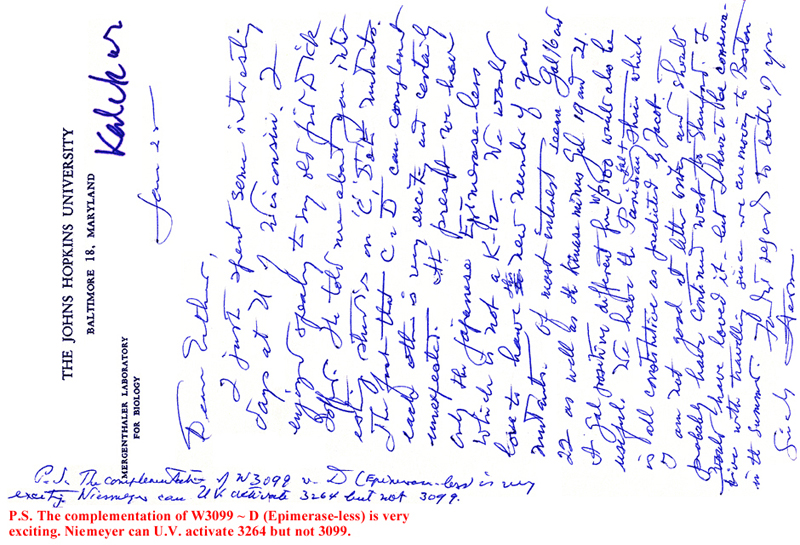 THE JOHNS HOPKINS UNIVERSITY
BALTIMORE 18, MARYLAND
Kalckar
MERGENTHALER LABORATORY
FOR BIOLOGY
Jan 25
Dear Esther,
I just spent some interesting
days at U of Wisconsin. I
enjoyed speaking to my old friend Dick
He told me about your
esting studies on C, D mutants.
The fact that C & D can complement
each other is very exciting and certainly
unexpected. At present we have
only the Japanese Epimerase-less
which is not a K-12. We would
love to have the new number of your
mutants. Of most interest seem Gal 16 and
22 as well as the Kinase minus Gal 19 and 21.
A gal positive different from W3100 would also be
useful. We have the Parisian gal+ strain which
is all constitutive as predicted by Jacob.
I am not good at letter writing and should
probably have continued west to Stanford. I
would have loved it - but I have to be conserva-
tive with travelling since we are moving to Boston
in the summer. Kindest regards to both of you
Sincerely Herman.
P.S. The complementation of W3099 ~ D (Epimerase-less) is very
exciting. Niemeyer can U.V. activate 3264 but not 3099.
P.S. The complementation of W3099 ~ D (Epimerase-less) is very
exciting. Niemeyer can U.V. activate 3264 but not 3099.